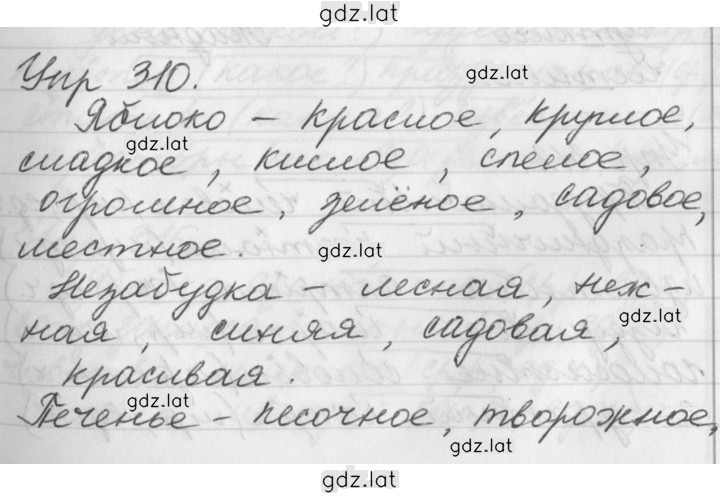 gdz.lat
Упр 310.
gdz.lat
Яблоко – красное, круглое,
gdz.lat
сладкое, кислое, спелое,
огромное, зелёное, садовое,
местное.
gdz.lat
Незабудка – лесная, неж-
gdz.lat
ная, синяя, садовая,
красивая.
gdz.lat
Печенье – песочное, творожное,
gdz.lat
gdz.lat